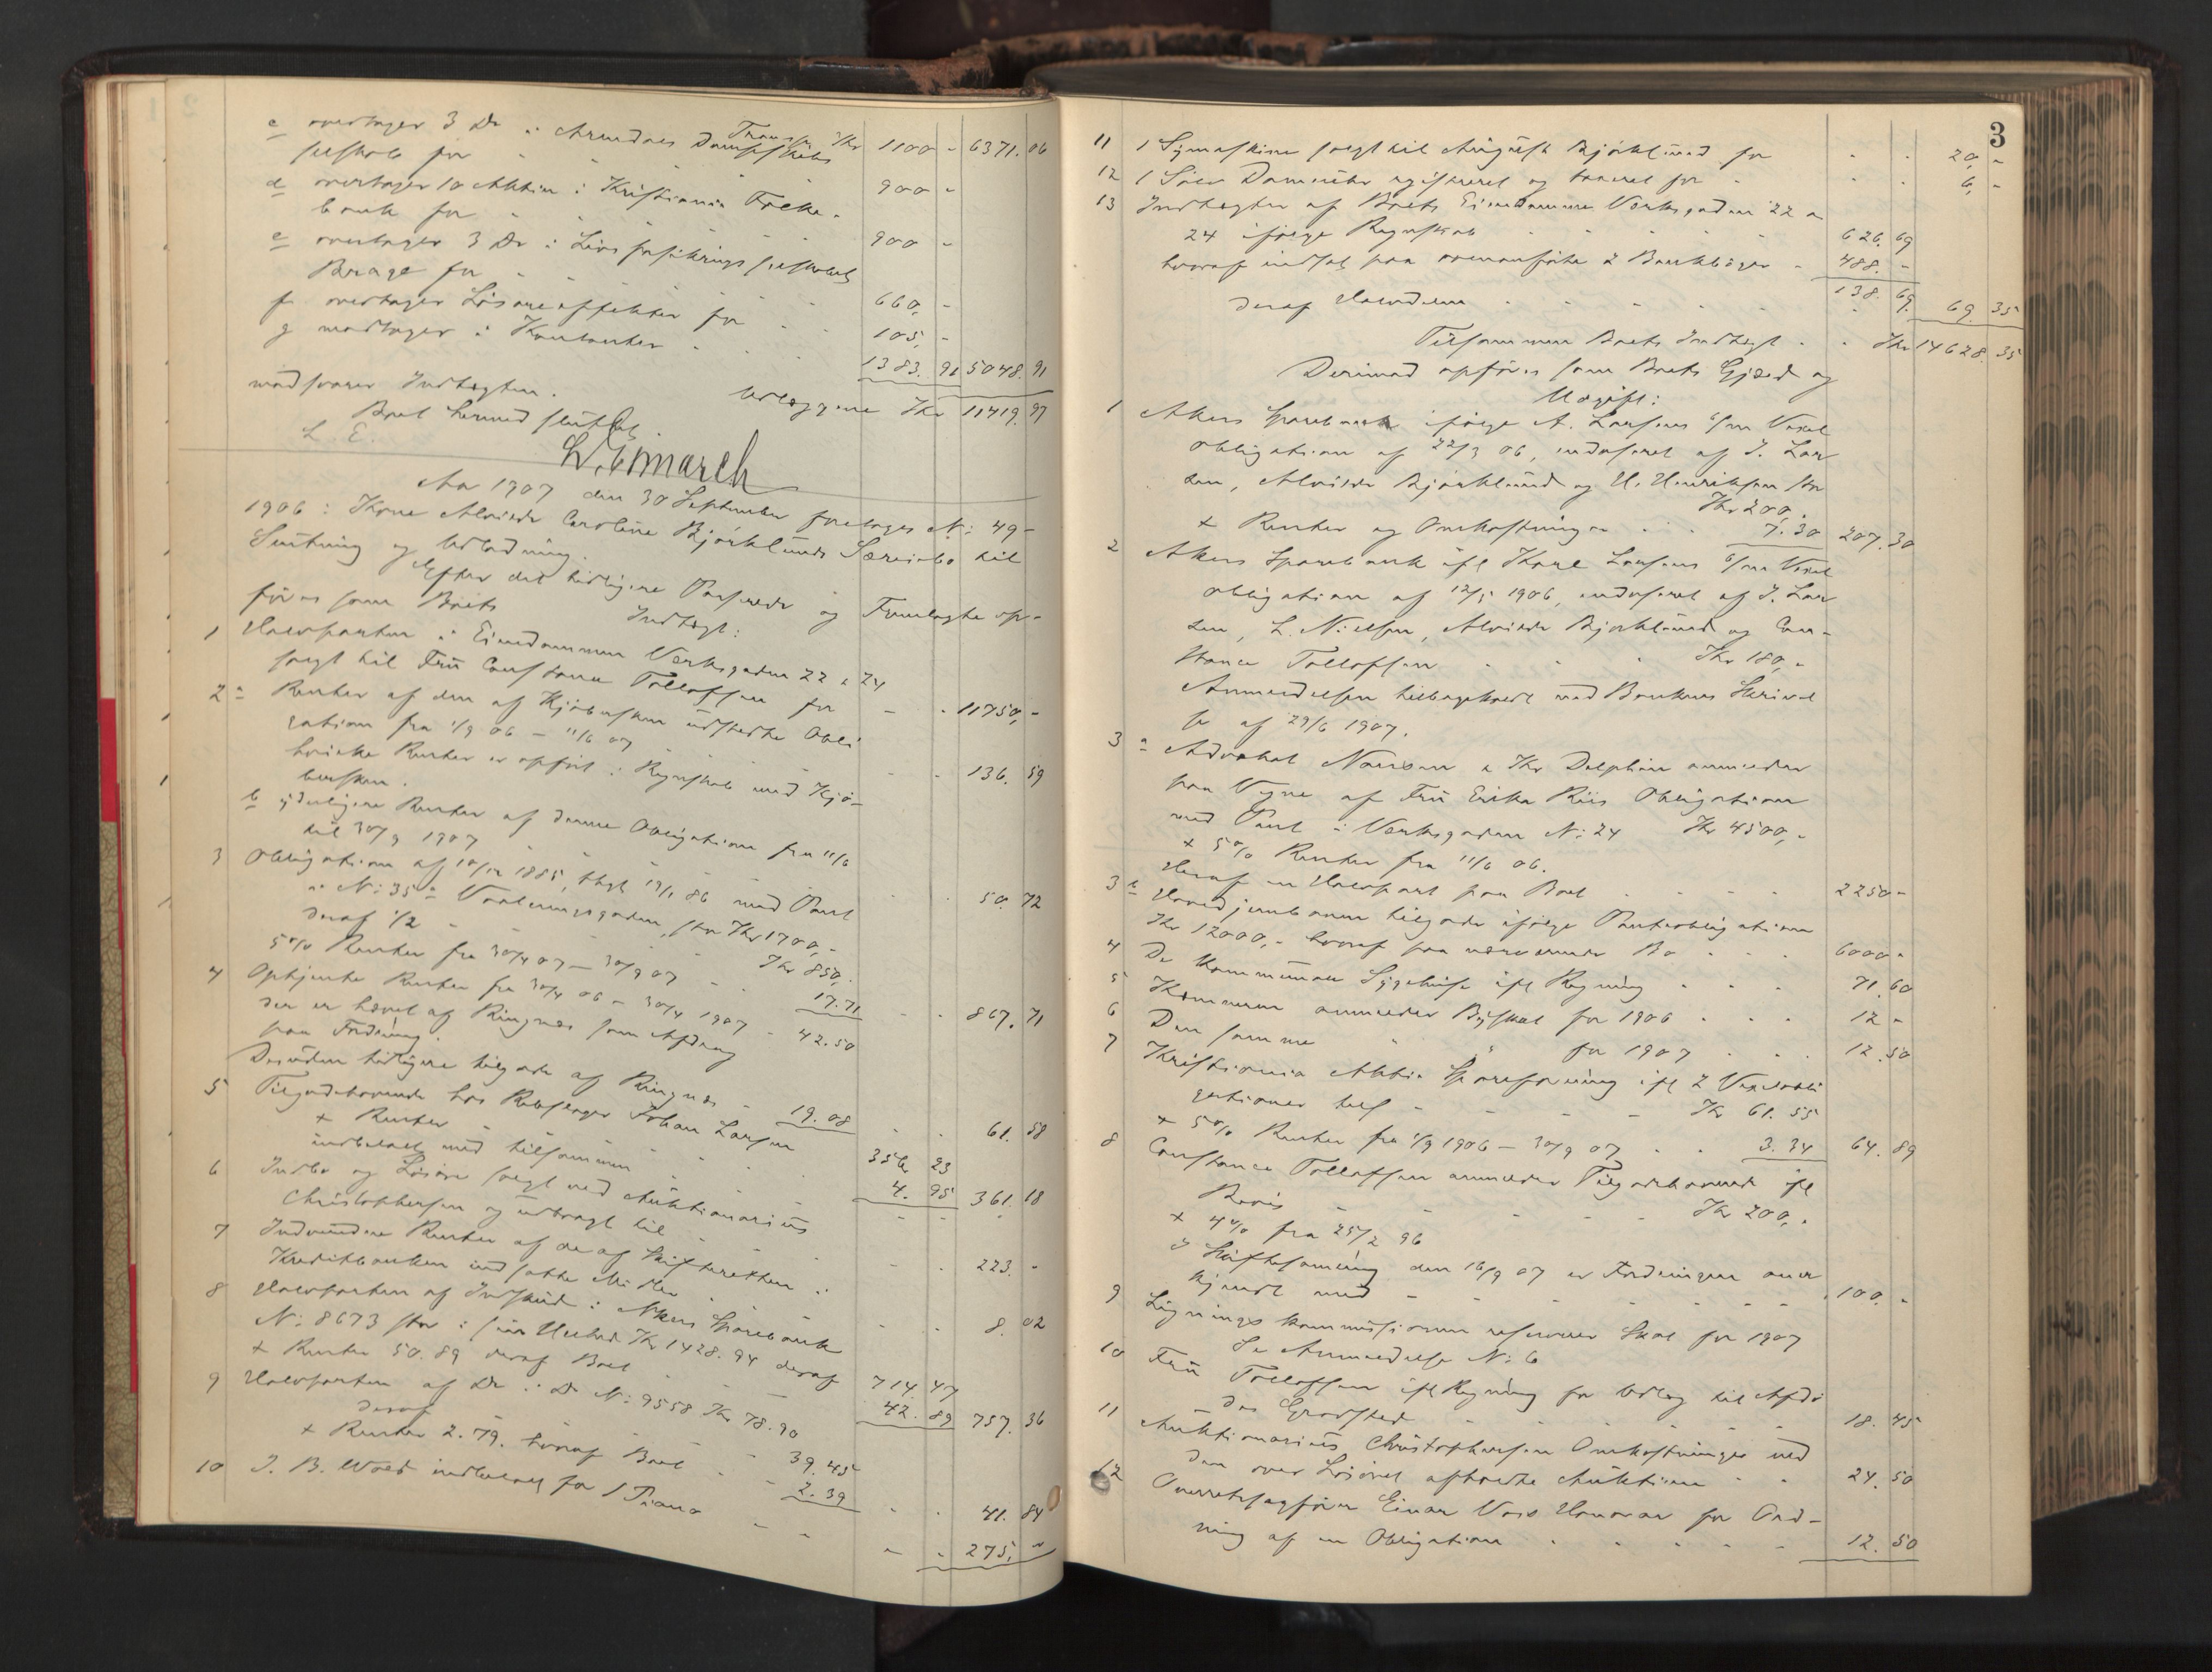 Transp. Kr
c overtager 3 Do i Arendals Dampskibs 1100 - 6371.06
selskab for
d overtager 10 Aktier i Kristiania Folke- 900 -
bank for
e overtager 3 Do i Livsforsikringsselskabet 900 -
Brage for
f overtager Løsøreeffekter for 660, -
g modtager i Kontanter 105, -
1383. 91 5048. 91
modsvarer Indtægten. Udlæggene Kr 11419.97
Boet hermed sluttet.
L. E.
Aar 1907 den 30 September foretages No: 49-
1906: Kone Alvilde Caroline Bjørklunds Særeiebo til
Slutning og Udlodning.
Efter det tidligere Passerede og Fremlagte op-
føres som Boets
Indtægt:
1 Halvparten i Eiendommen Verksgaden 22 & 24
solgt til Fru Constance Tolloffsen for 11750, -
2 a Renter af den af Kjøbersken udstedte Obli
gation fra 1/9 06 - 11/6 07 136. 59
hvilke Renter er opført i Regnskab med Kjø-
bersken.
b yderligere Renter af denne Obligation fra 11/6
til 30/9 1907 50. 72
3 Obligation af 10/12 1885, thgl 19/1 86 med Pant
i No: 35 a Vaalerenggaden, stor Kr 1700,-
deraf 1/2 Kr 850,-
5 % Renter fra 30/4 07 - 30/9 07 17.71 867. 71
4 Optjente Renter fra 30/4 06 - 30/4 1907 42.50
der er hævet af Ringnæs som Afdrag
paa Fordring.
Desuden tidligere tilgode af Ringnæs 19.08 61. 58
5 Tilgodehavende hos Rebslager Johan Larsen 356. 23
+ Renter 4. 95 361. 18
indbetalt med tilsammen
6 Indbo og Løsøre solgt ved Auktionarius
Christophersen og udbragt til 223. -
7 Indvundne Renter af de af Skifteretten i
Kreditbanken indsatte Midler 8. 02
8 Halvparten af Indskud i Akers Sparebank
No: 8673 stor i sin Helhed Kr 1428.94 deraf 714. 47
+ Renter 50.89 deraf Boet 42. 89 757. 36
9 Halvparten af Do i Do No: 9558 Kr 78.90
deraf 39.45
+ Renter 2.79. hvoraf Boet 2.39 41. 84
10 J. B. Wold indbetalt for 1 Piano 275, -
3
11 1 Symaskine solgt til August Bjørklund for 20, -
12 1 Sølv Dameuhr registreret og taxeret for 6, -
13 Indtægter af Boets Eiendomme Verksgaden 22 &
24 ifølge Regnskab 626. 69
hvoraf indsat paa ovenanførte 2 Bankbøger 488. -
138. 69
deraf Halvdelen 69. 35
Tilsammen Boets Indtægt Kr 14628. 35
Derimod opføres som Boets Gjæld og
Udgift:
1 Akers Sparebank ifølge A. Larsens 6/m Vexel
obligation af 22/3 06, endosseret af J. Lar
sen, Alvilde Bjørklund og H. Henriksen stor
Kr 200,-
+ Renter og Omkostninger 7.30 207. 30
2 Akers Sparebank ifl Karl Larsens 6/m Vexel
obligation af 12/5 1906, endosseret af J. Lar
sen, L. Nielsen, Alvilde Bjørklund og Con-
stance Tolloffsen Kr 180,-
Anmeldelsen tilbagekaldt med Bankens Skrivel
se af 29/6 1907.
3 a Advokat Nansen & Kr Delphin anmelder
paa Vegne af Fru Erika Riis Obligation
med Pant i Verksgaden No: 24 Kr 4500,-
+ 5% Renter fra 11/6 06.
Heraf en Halvpart paa Boet 2250 -
3 b Hovedjernbanen tilgode ifølge Panteobligation
Kr 12000,- hvoraf paa nærværende Bo 6000 -
4 De kommunale Sygehuse ifl Regning 71. 60
5 Kæmneren anmelder Byskat for 1906 12 -
6 Den samme " " for 1907 12. 50
7 Kristiania Aktie Spareforening ifl 2 Vexelobli
gationer tils Kr 61.55
+ 5% Renter fra 1/9 1906 - 30/9 07 3.34 64. 89
8 Constance Tolloffsen anmelder Tilgodehavende ifl
Bevis Kr 200,-
+ 4% fra 25/2 96
I Skiftesamling den 16/9 07 er Fordringen aner
kjendt med 100, -
9 Ligningskommissionen reserverer Skat for 1907
Se Anmeldelse No: 6
10 Fru Tolloffsen ifl Regning for Udlæg til Afdø
des Gravsted 18. 45
11 Auktionarius Christophersen Omkostninger ved
den over Løsøret afholdte Auktion 24. 50
12 Overretssagfører Einar Voss Honorar for Ord-
ning af en Obligation 12. 50